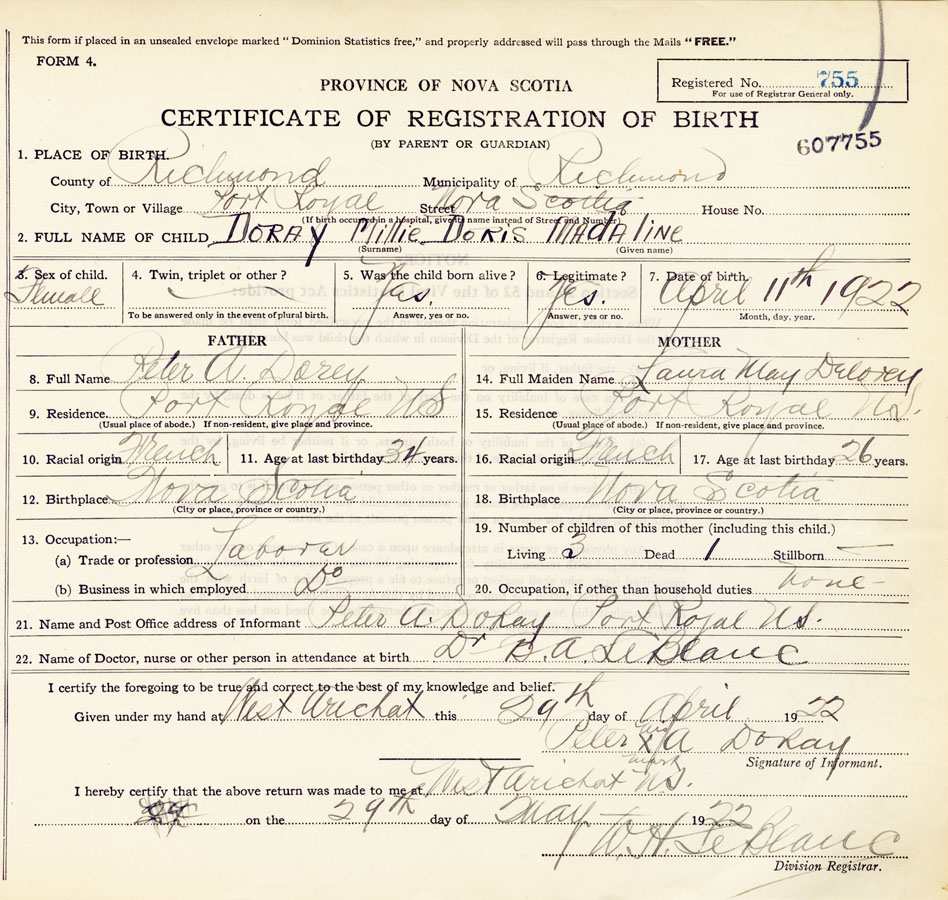 This form if placed in an unsealed envelope marked "Dominion Statistics free," and properly addressed will pass through the Mails "FREE."
FORM 4.
Registered No. 755
For use of Registrar General only.
PROVINCE OF NOVA SCOTIA
CERTIFICATE OF REGISTRATION OF BIRTH
607755
(BY PARENT OR GUARDIAN)
1. PLACE OF BIRTH.
County of Richmond Municipality of Richmond
City, Town or Village Port Royal Street Nova Scotia House No.
(If birth occurred in a hospital, give its name instead of Street and Number)
2. FULL NAME OF CHILD DORAY Millie DORIS MADALINE
(Surname) (Given name)
3. Sex of child. 4. Twin, triplet or other? 5. Was the child born alive? 6. Legitimate? 7. Date of birth.
Female Yes. Yes. April 11th 1922
To be answered only in the event of plural birth. Answer, yes or no. Answer, yes or no. Month, day, year.
FATHER MOTHER
8. Full Name Peter A. Dorey 14. Full Maiden Name Laura May Delorey
9. Residence. Port Royal NS 15. Residence Port Royal N.S.
(Usual place of abode.) If non-resident, give place and province. (Usual place of abode.) If non-resident, give place and province.
10. Racial origin French 11. Age at last birthday 34 years. 16. Racial origin French 17. Age at last birthday 26 years.
12. Birthplace Nova Scotia 18. Birthplace Nova Scotia
(City or place, province or country.) (City or place, province or country.)
13. Occupation:— 19. Number of children of this mother (including this child.)
(a) Trade or profession Laborar Living 3 Dead 1 Stillborn —
(b) Business in which employed Do 20. Occupation, if other than household duties None -
21. Name and Post Office address of Informant Peter A. DoRay Port Royal N.S.
22. Name of Doctor, nurse or other person in attendance at birth Dr B. A. LeBlanc
I certify the foregoing to be true and correct to the best of my knowledge and belief.
Given under my hand at West Arichat this 29th day of April 1922
Peter his x mark A DoRay
Signature of Informant.
I hereby certify that the above return was made to me at West Arichat N.S.
on the 29th day of May 1922
W. H. LeBlanc
Division Registrar.